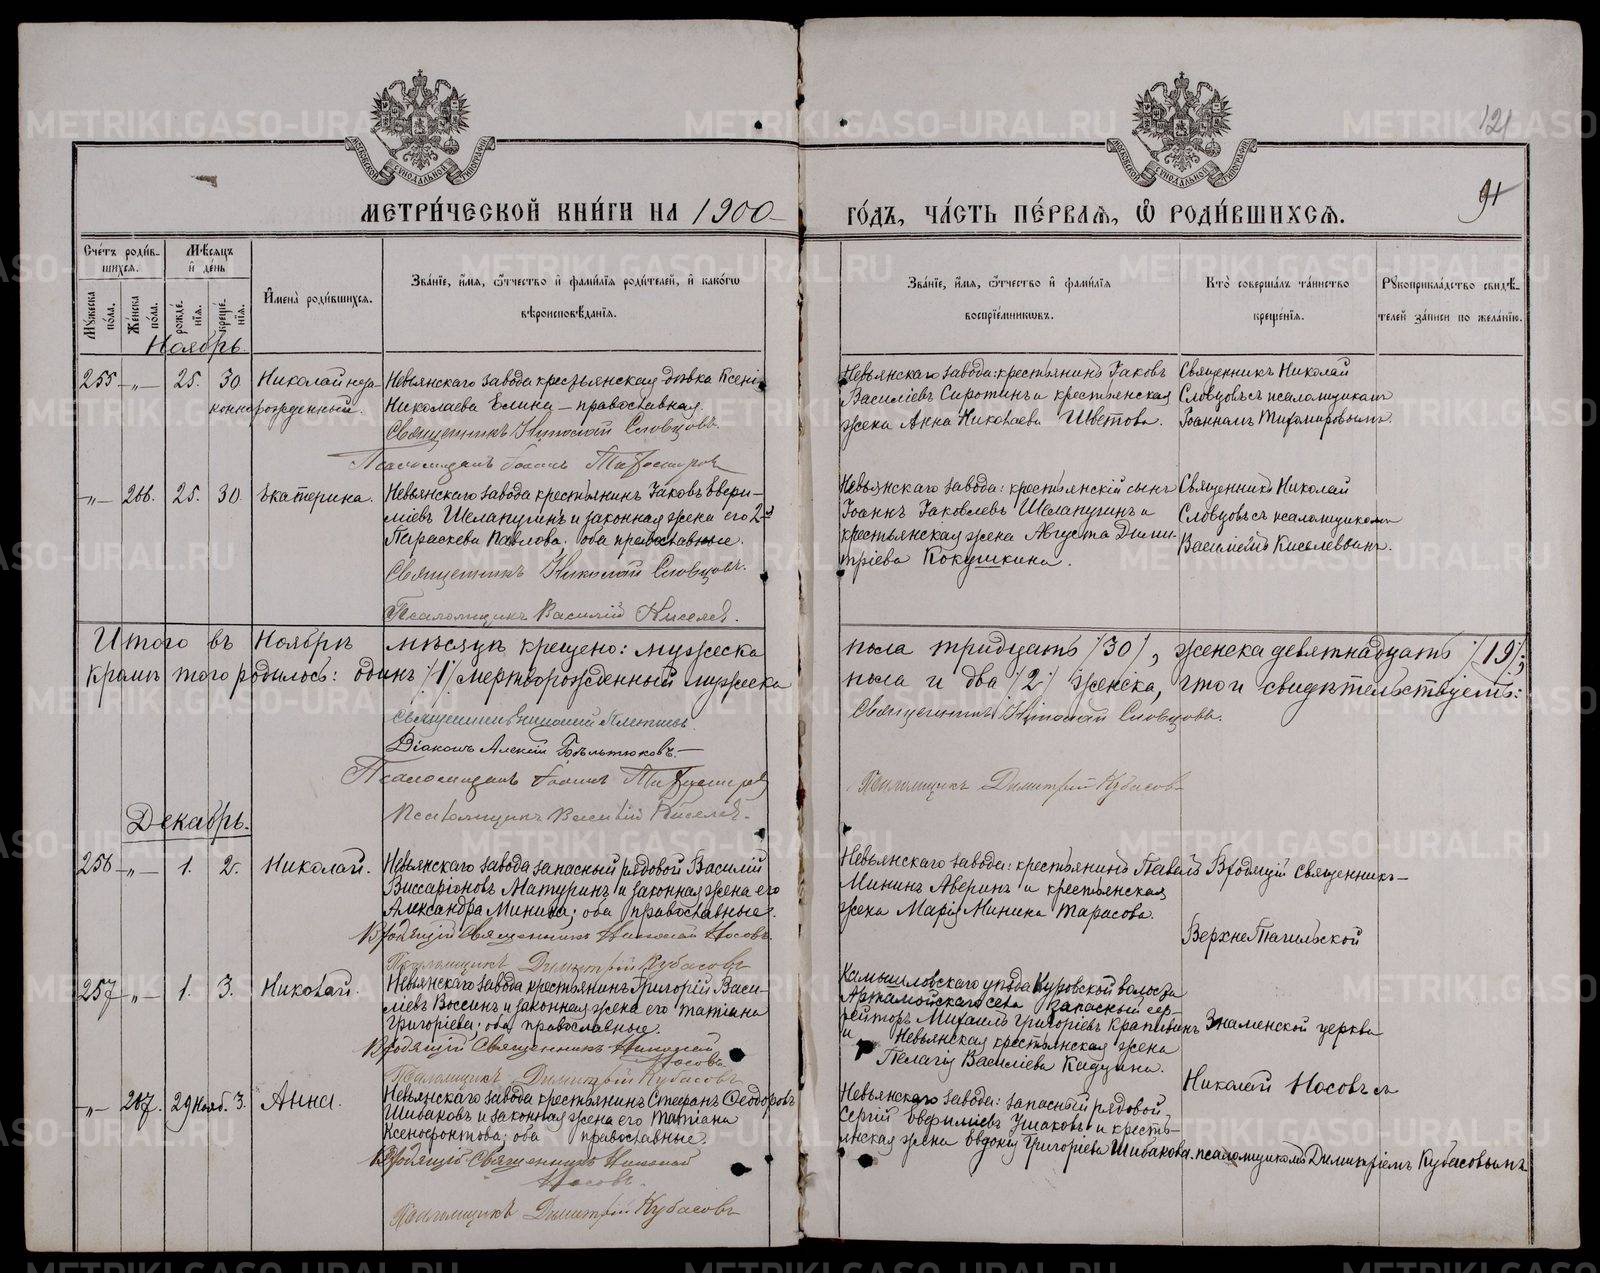 121
91
МЕТРИ́ЧЕСКОЙ КНИ́ГИ НА 1900 ГО́ДЪ, ЧА́СТЬ ПЕ́РВАЯ, Ѡ РОДИ́ВШИХСЯ.
Сче́тъ роди́вшихся.
Му́жеска по́ла.
Же́нска по́ла.
Мѣ́сяцъ и́ де́нь
рожде́нїя.
креще́нїя.
И҆мена̀ роди́вшихся.
Зва́нїе, и҆́мя, ѻ҆́тчество и҆ фами́лїя роди́телей, и҆ како́гѡ вѣроисповѣ́данїя.
Зва́нїе, и҆́мя, ѻ҆́тчество и҆ фами́лїя воспрїе́мниковъ.
Кто̀ соверша́лъ та́инство креще́нїя.
Рꙋкоприкла́дство свидѣ́телей за́писи по жела́нїю.
Ноябрь
255 –„– 25. 30 Николай неза-
коннорожденный.
Невьянскаго завода крестьянская дѣвка Ксенія
Николаева Елина – православная.
Священникъ Николай Словцовъ.
Псаломщикъ Іоаннъ Тихомировъ
Невьянскаго завода: крестьянинъ Іаковъ
Василіевъ Сиротинъ и крестьянская
жена Анна Николаева Цвѣтова.
Священникъ Николай
Словцовъ съ псаломщикомъ
Іоанномъ Тихомировымъ.
–„– 266. 25. 30. Екатерина.
Невьянскаго завода крестьянинъ Іаковъ Евфи-
міевъ Шелапугинъ и законная жена его 2-я
Параскева Павлова. оба православные.
Священникъ Николай Словцовъ.
Псаломщикъ Василій Киселевъ.
Невьянскаго завода: крестьянскій сынъ
Іоаннъ Іаковлевъ Шелапугинъ и
крестьянская жена Августа Дими-
тріева Кокушкина.
Священникъ Николай
Словцовъ съ псаломщикомъ
Василіемъ Киселевымъ.
Итого въ Ноябрѣ мѣсяцѣ крещено: мужеска пола тридцать /30/, женска девятнадцать /19/;
Кромѣ того родилось: одинъ /1/ мертворожденный мужеска пола и два /2/ женска, что и свидѣтельствуемъ:
Діаконъ Алексій
Псаломщикъ Іоаннъ Тихомировъ
Псаломщикъ Василій Киселевъ.
Священникъ Николай Словцовъ.
Псаломщикъ Димитрій Кубасовъ
Декабрь.
256 –„– 1. 2. Николай.
Невьянскаго завода запасный рядовой Василій
Виссаріоновъ Матуринъ и законная жена его
Александра Минина; оба православные.
Входящій Священникъ Николай Носовъ.
Псаломщикъ Димитрій Кубасовъ
Невьянскаго завода: крестьянинъ Павелъ
Мининъ Аверинъ и крестьянская
жена Марія Минина Тарасова.
Входящій священникъ –
ВерхнеТагильской
257 –„– 1. 3. Николай.
Невьянскаго завода крестьянинъ Григорій Васи-
ліевъ Воссинъ и законная жена его Татіана
Григоріева; оба православные.
Входящій Священникъ Николай
Носовъ
Псаломщикъ Димитрій Кубасовъ
Камышловскаго уѣзда Куровской волости
села запасной ефрейторъ Михаилъ Григоріевъ Крапивинъ
и Невьянская крестьянская жена
Пелагія Василіева Кадцына.
Знаменской церкви
Николай Носовъ съ
–„– 267. 29 Нояб. 3. Анна.
Невьянскаго завода крестьянинъ Стефанъ Ѳеодоровъ
Шибаковъ и законная жена его Татіана
Ксенофонтова; оба православные.
Входящій Священникъ Николай
Носовъ.
Псаломщикъ Димитрій Кубасовъ
Невьянскаго завода: запасный рядовой
Сергій Евфиміевъ Ушаковъ и кресть-
янская жена Евдокія Григоріева Шибакова.
псаломщикомъ Димитріемъ Кубасовымъ
METRIKI.GASO-URAL.RU